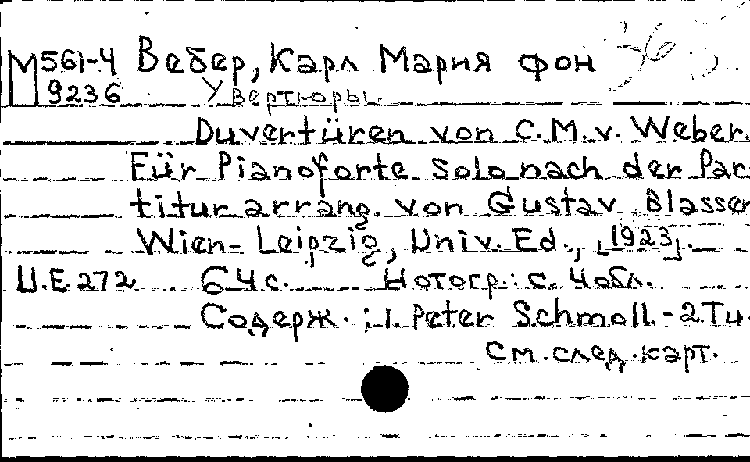 М 561-4 Вебер, Карл Мария фон
9236 Увертюры
Ouvertüren von C.M.v. Weber.
Für Pianoforte solo nach der Par-
titur arrang. von Gustav Blasser
Wien-Leipzig, Univ. Ed., [1923].
U.E. 272 64 с. Нотогр.: с. 4 обл.
Содерж.: 1. Peter Schmoll.-2. Tu
См. след. карт.